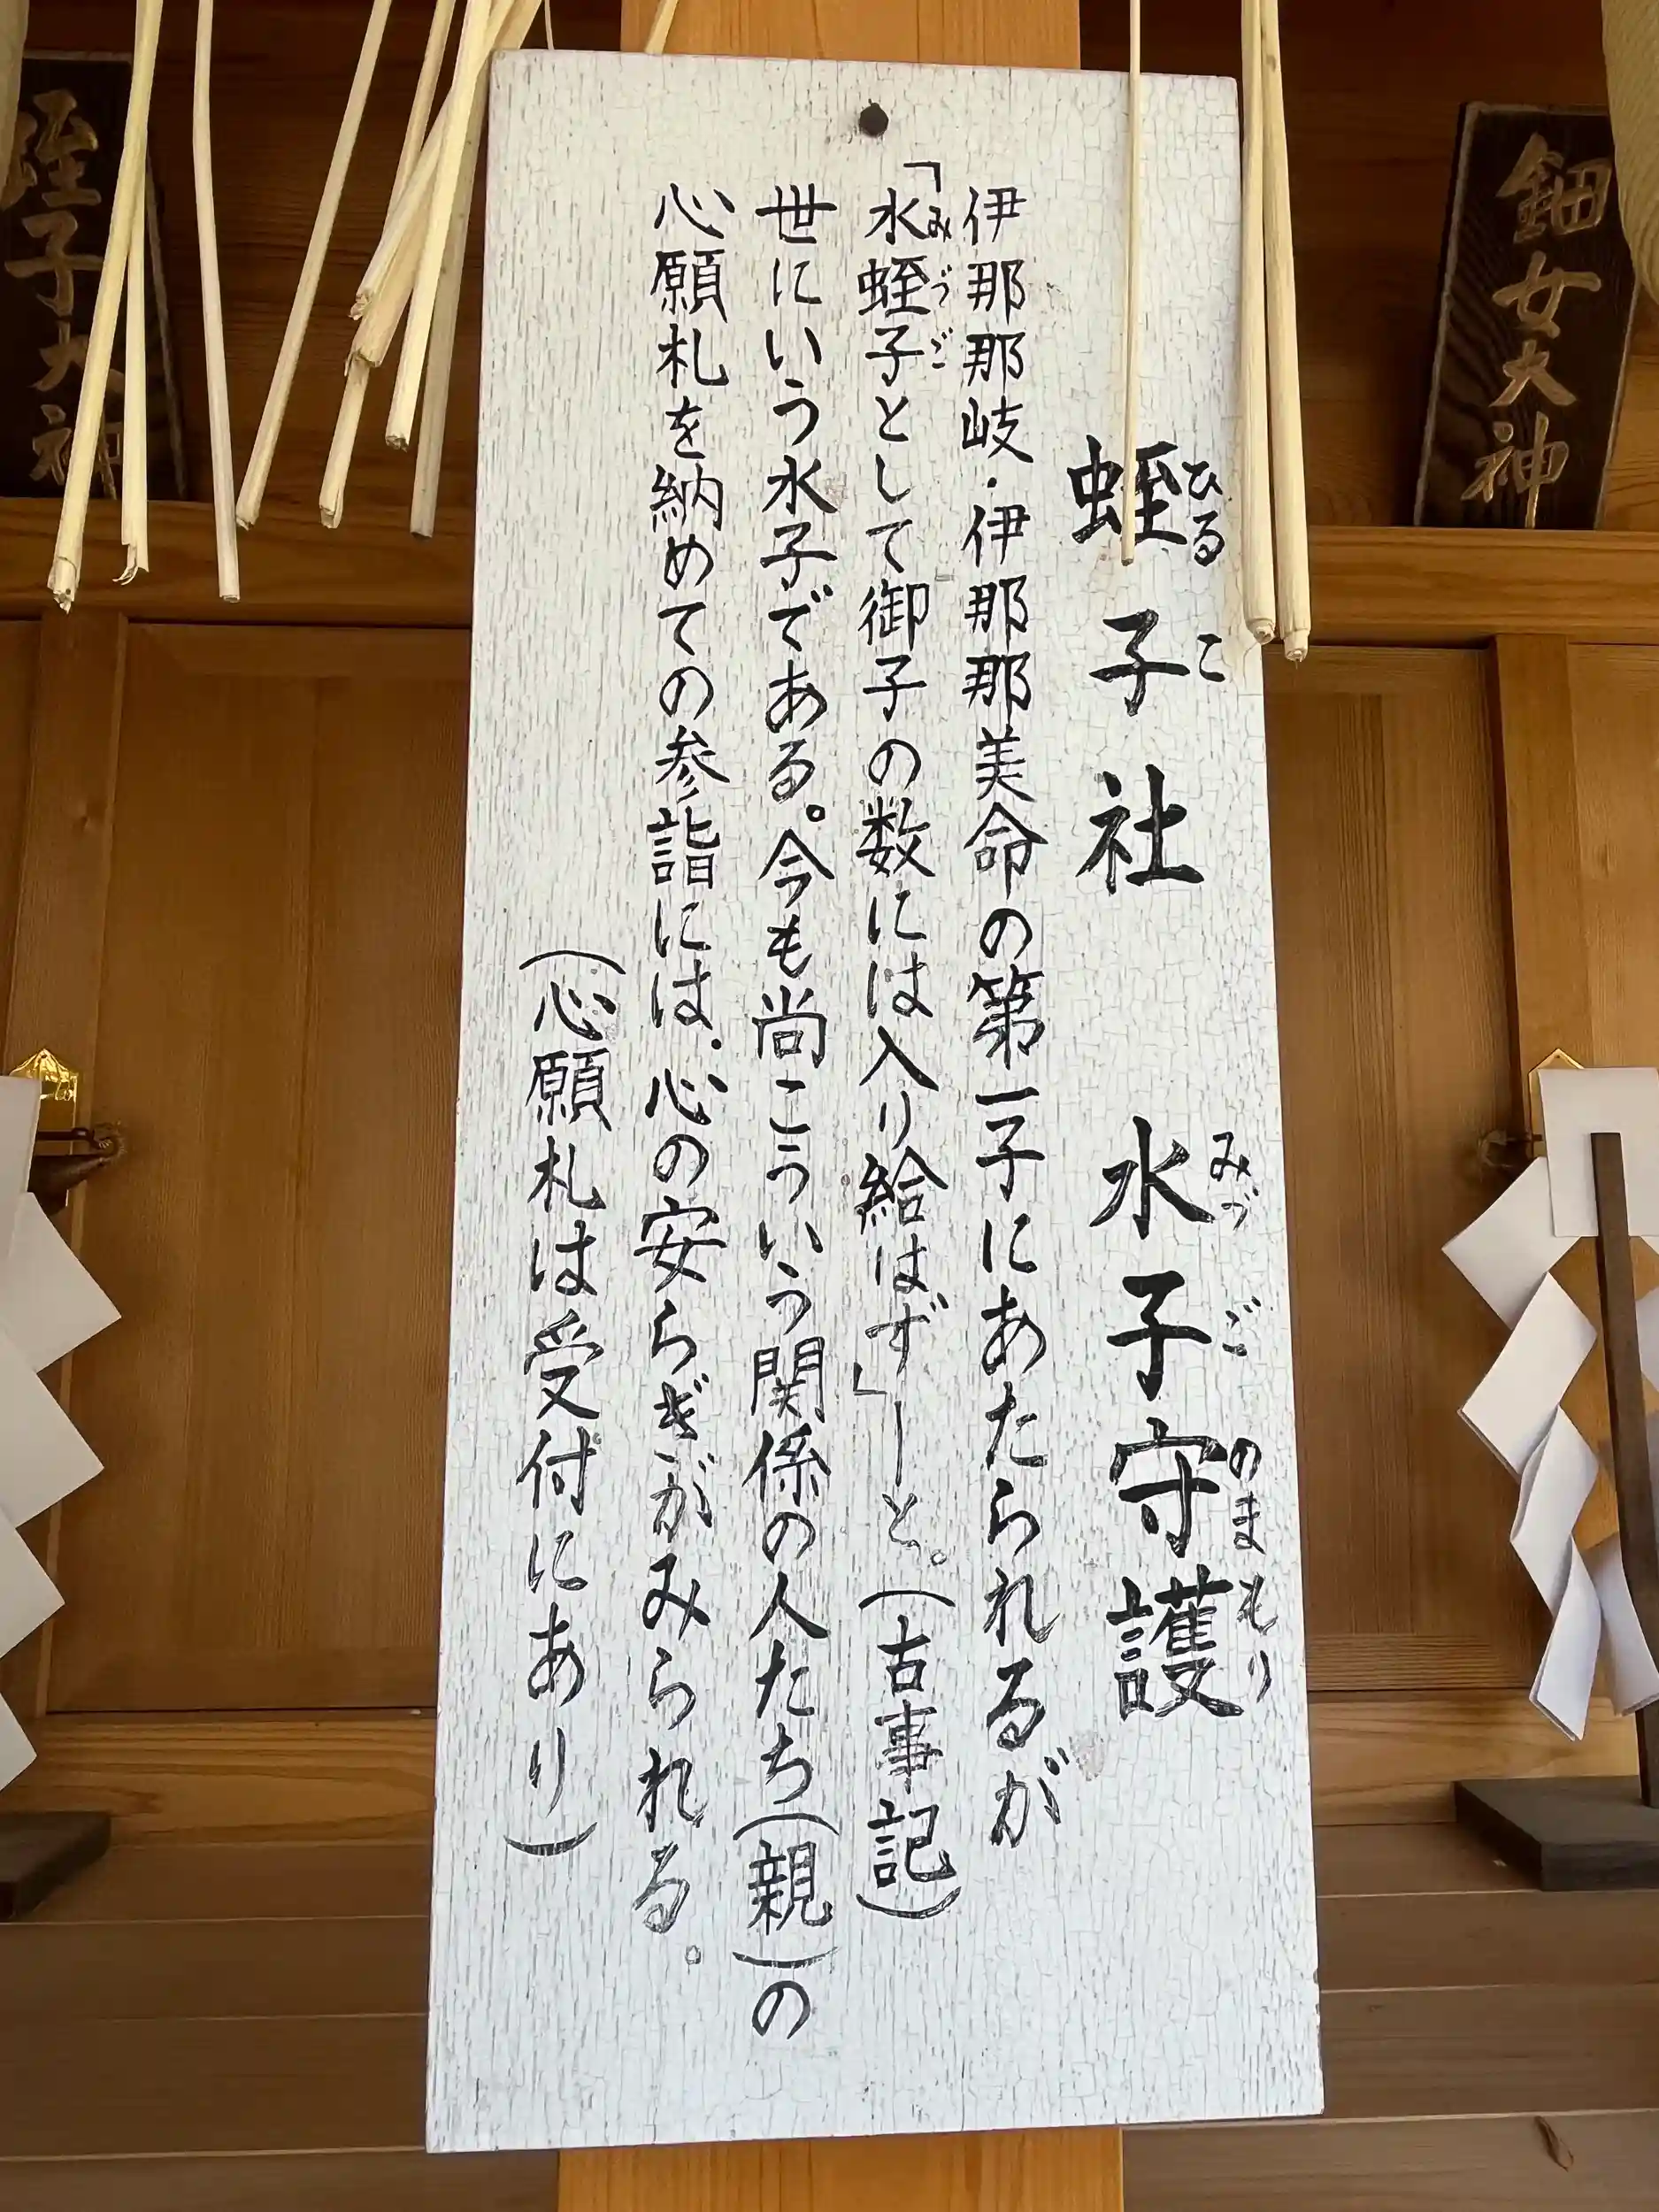 鈿女大神
蛭子社　水子守護
ひるこ　みづごのまもり
伊那那岐・伊那那美命の第一子にあたられるが
「水蛭子として御子の数には入り給はず」―と。(古事記)
みづご
世にいう水子である。今も尚こういう関係の人たち(親)の
心願札を納めての参詣には、心の安らぎがみられる。
(心願札は受付にあり)
蛭子大神